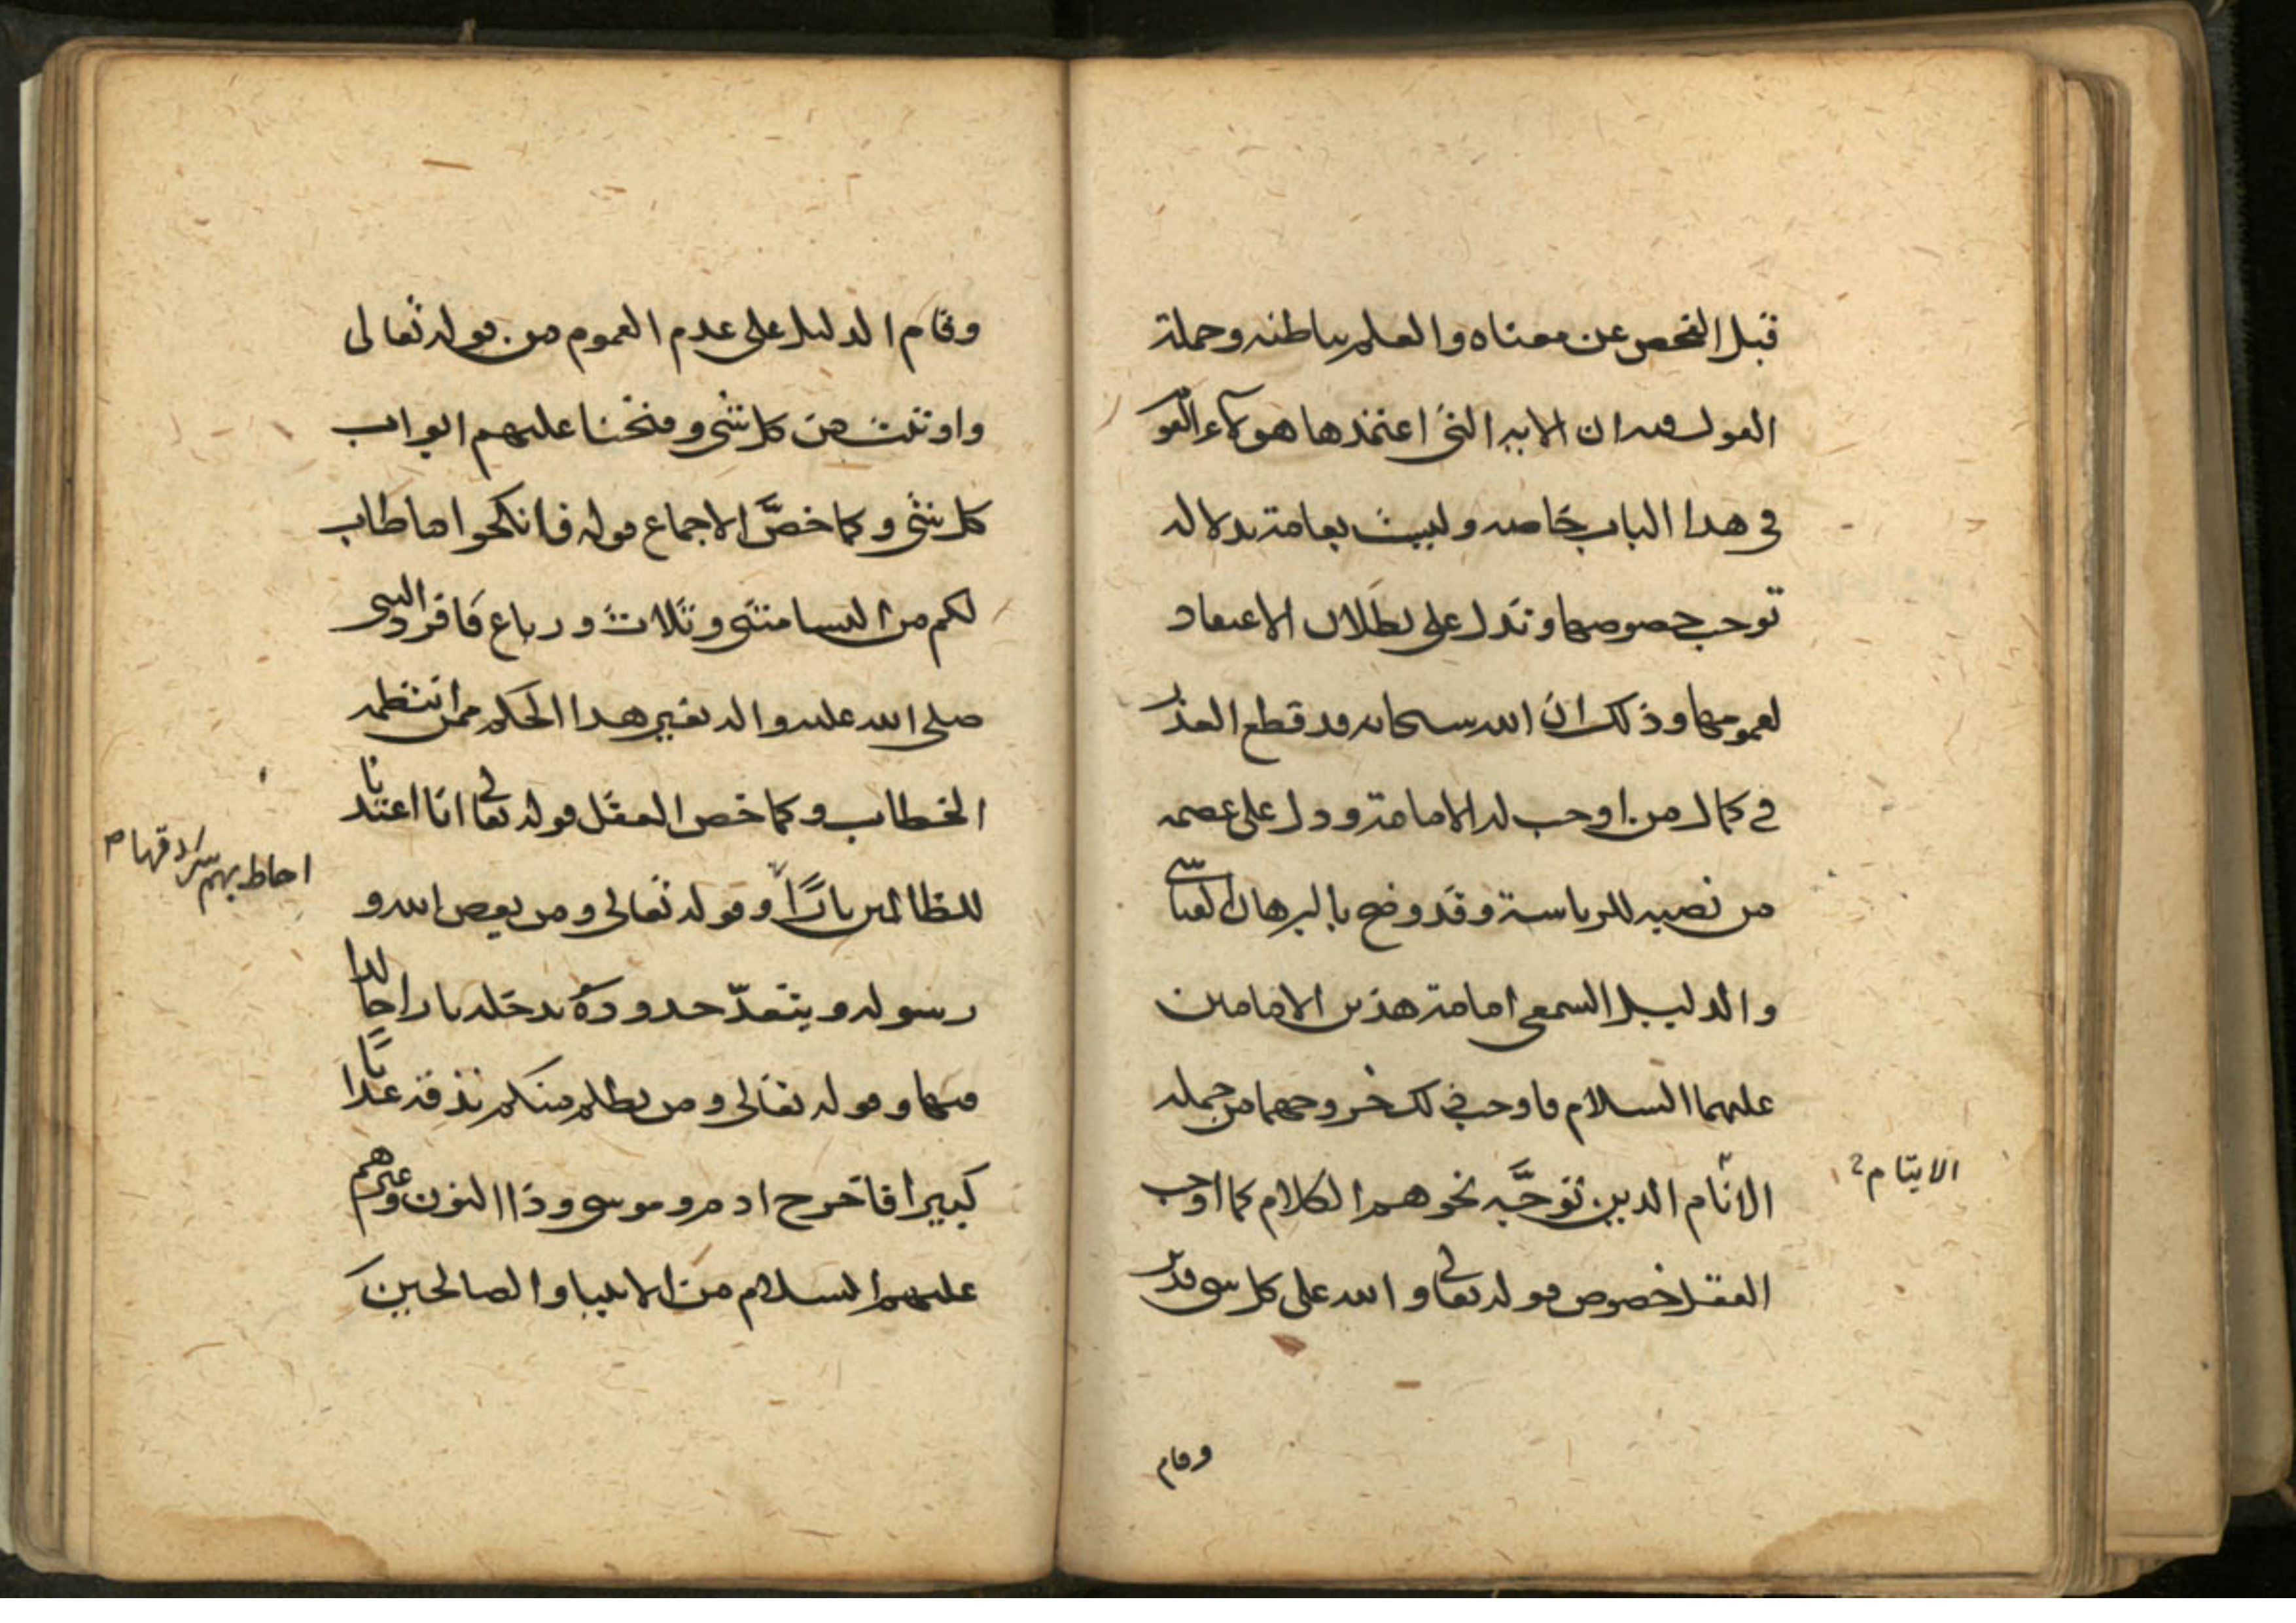 قبل الفحص عن معناه والعلم بباطنه وجملة
القول فيه ان الاية التي اعتمدها هولاء القو
في هذا الباب خاصه وليست بعامة بدلاله
توجب خصوصها وتدل على بطلان الاعتقاد
لعمومها وذلك ان الله سبحانه قد قطع العذر
في كمال من اوجب له الامامة ودل على عصمه
من نصبه للرياسة وقد وضح بالبرهان القياسي
والدليل السمعي امامة هذين الامامين
عليهما السلام فاوجب ذلك خروجهما من جمله
الانام الذين توجَّه نحوهم الكلام كما اوجب
الايتام
العقل خصوص قوله تعالى والله على كل شي قدير
وقام
وقام الدليل على عدم العموم من قوله تعالى
واوتيت من كل شي وفتحنا عليهم ابواب
كل شي وكما خصَّ الاجماع قوله فانكحوا ما طاب
لكم من النسا مثنى وثلاث ورباع فافرد النبي
صلى الله عليه واله بغير هذا الحكم ممن انتظمه
الخطاب وكما خص العقل قوله تعالى انا اعتدنا
للظالمين ناراً وقوله تعالى ومن يعص الله و
احاط بهم سرادقها
رسوله ويتعدّ حدوده يدخله نارا خالدا
فيها وقوله تعالى ومن يظلم منكم نذقه عذابا
كبيرا فاخرج ادم وموسى وذا النون وغيرهم
عليهم السلام من الانبيا والصالحين